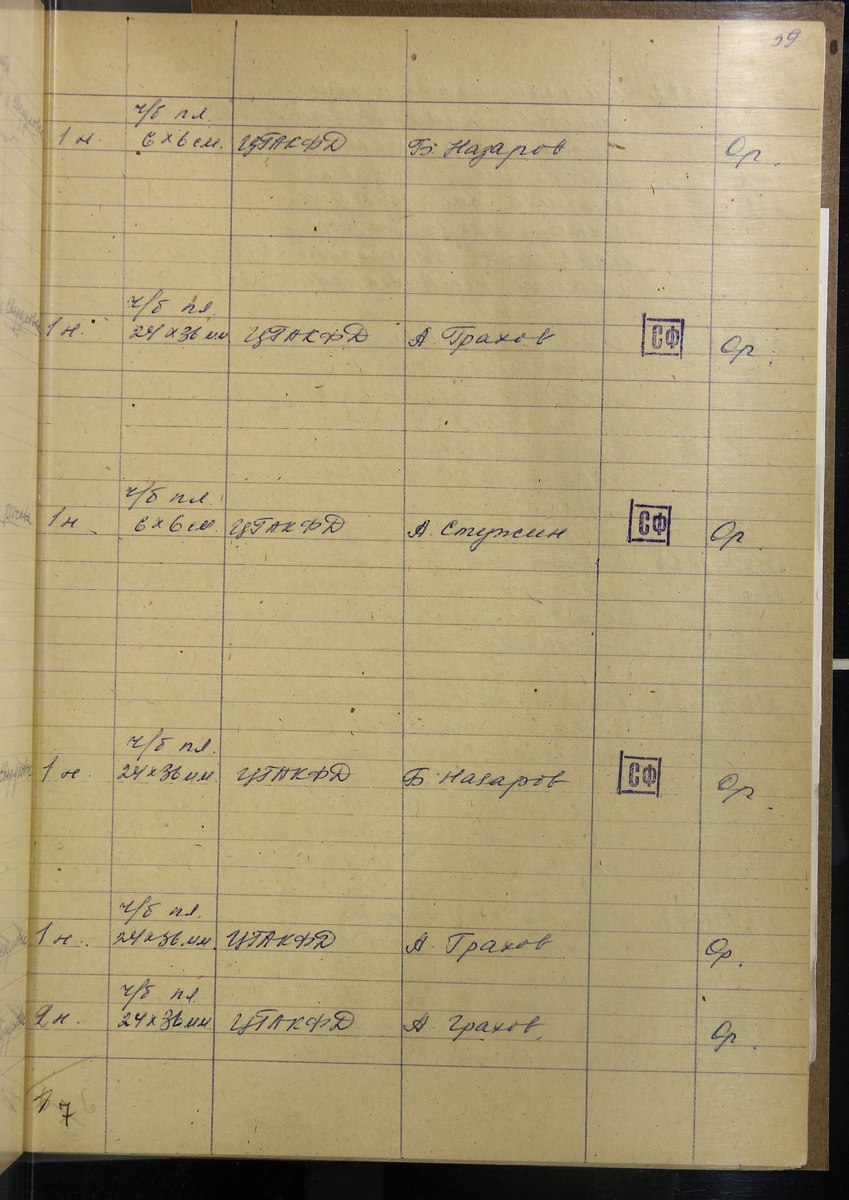 59
ч/б пл.
1 н. 6×6 см. ЦГАКФД Б. Назаров Ор.
ч/б пл.
1 н. 24×36 мм ЦГАКФД А. Грахов СФ Ор.
ч/б пл.
1 н. 6×6 см. ЦГАКФД А. Стужин СФ Ор.
ч/б пл.
1 н. 24×36 мм ЦГАКФД Б. Назаров СФ Ор.
ч/б пл.
1 н. 24×36 мм. ЦГАКФД А. Грахов Ор.
ч/б пл.
2 н. 24×36 мм ЦГАКФД А. Грахов. Ор.
7